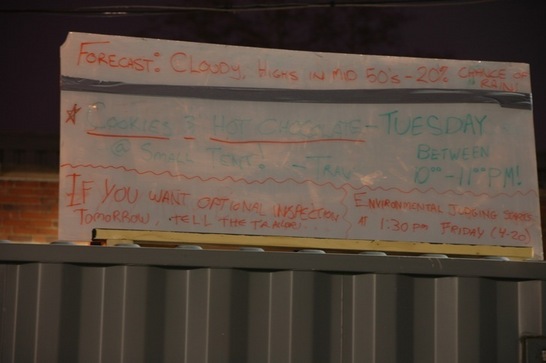 FORECAST: CLOUDY, HIGHS IN MID 50's - 20% CHANCE OF RAIN!
★ COOKIES & HOT CHOCOLATE - TUESDAY
@ SMALL TENT BETWEEN
10⁰⁰ - 11⁰⁰ PM!
IF YOU WANT OPTIONAL INSPECTION
TOMORROW, TELL THE
ENVIRONMENTAL JUDGING
AT 1:30 PM FRIDAY (4-20)